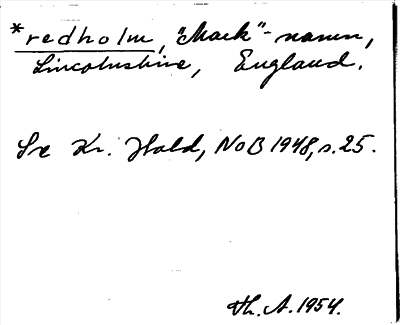 *redholm, "Mark"-namn,
Lincolnshire, England.
Se Kr. Hald, NoB 1948, s. 25.
Th. A. 1954.